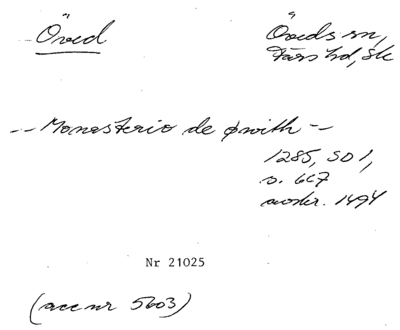 Öved Öveds sn,
Färs hd, Sk
-- Monasterio de øwith --
1285, SD 1,
s. 667
avskr. 1494
Nr 21025
(acc nr 5603)